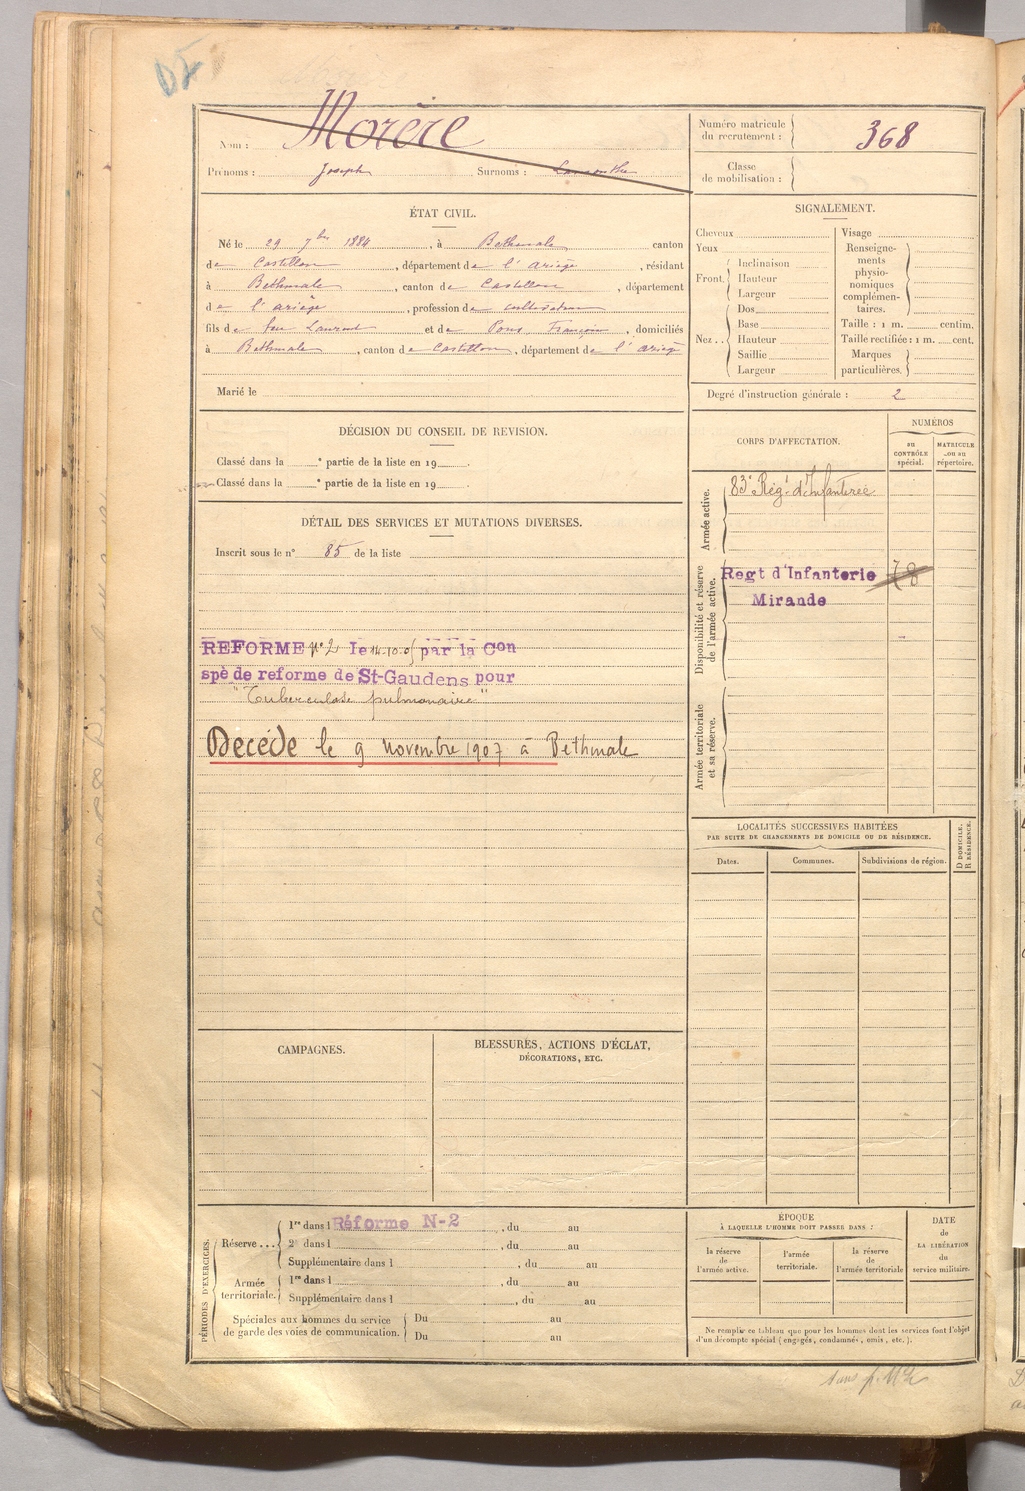 D2
Nom : Morère
Prénoms : Joseph Surnoms :
Numéro matricule
du recrutement : 368
Classe
de mobilisation :
ÉTAT CIVIL.
Né le 29 7bre 1884, à Bethmale canton
de Castillon, département de l'ariège, résidant
à Bethmale, canton de Castillon, département
de l'ariège, profession de cultivateur
fils de feu Laurent et de Pons Françoise, domiciliés
à Bethmale, canton de Castillon, département de l'ariège
Marié le
SIGNALEMENT.
Cheveux
Yeux
Front.
Inclinaison
Hauteur
Largeur
Nez..
Dos
Base
Hauteur
Saillie
Largeur
Visage
Renseigne-
ments
physio-
nomiques
complémen-
taires.
Taille : 1 m. centim.
Taille rectifiée : 1 m. cent.
Marques
particulières.
Degré d'instruction générale : 2
DÉCISION DU CONSEIL DE REVISION.
Classé dans la e partie de la liste en 19 .
Classé dans la e partie de la liste en 19 .
DÉTAIL DES SERVICES ET MUTATIONS DIVERSES.
Inscrit sous le n° 85 de la liste
REFORME N°2 le 14.10.05 par la Con
spè de reforme de St-Gaudens pour
"Tuberculose pulmonaire"
Décédé le 9 novembre 1907 à Bethmale
CORPS D'AFFECTATION.
NUMÉROS
au
CONTRÔLE
spécial.
MATRICULE
ou au
répertoire.
Armée active.
83e Régt d'Infanterie
Disponibilité et réserve
de l'armée active.
Regt d'Infanterie
Mirande
Armée territoriale
et sa réserve.
LOCALITÉS SUCCESSIVES HABITÉES
PAR SUITE DE CHANGEMENTS DE DOMICILE OU DE RÉSIDENCE.
Dates.
Communes.
Subdivisions de région.
D DOMICILE.
R RÉSIDENCE.
CAMPAGNES.
BLESSURES, ACTIONS D'ÉCLAT,
DÉCORATIONS, ETC.
PÉRIODES D'EXERCICES.
Réserve...
1re dans l Réforme N-2, du au
2e dans l , du au
Supplémentaire dans l , du au
Armée
territoriale.
1re dans l , du au
Supplémentaire dans l , du au
Spéciales aux hommes du service
de garde des voies de communication.
Du au
Du au
ÉPOQUE
À LAQUELLE L'HOMME DOIT PASSER DANS :
la réserve
de
l'armée active.
l'armée
territoriale.
la réserve
de
l'armée territoriale
DATE
de
LA LIBÉRATION
du
service militaire.
Ne remplir ce tableau que pour les hommes dont les services font l'objet
d'un décompte spécial (engagés, condamnés, omis, etc.).